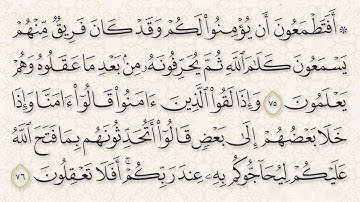 ۞ أَفَتَطْمَعُونَ أَن يُؤْمِنُوا۟ لَكُمْ وَقَدْ كَانَ فَرِيقٌ مِّنْهُمْ
يَسْمَعُونَ كَلَـٰمَ ٱللَّهِ ثُمَّ يُحَرِّفُونَهُۥ مِنۢ بَعْدِ مَا عَقَلُوهُ وَهُمْ
يَعْلَمُونَ ٧٥ وَإِذَا لَقُوا۟ ٱلَّذِينَ ءَامَنُوا۟ قَالُوٓا۟ ءَامَنَّا وَإِذَا
خَلَا بَعْضُهُمْ إِلَىٰ بَعْضٍ قَالُوٓا۟ أَتُحَدِّثُونَهُم بِمَا فَتَحَ ٱللَّهُ
عَلَيْكُمْ لِيُحَآجُّوكُم بِهِۦ عِندَ رَبِّكُمْ ۚ أَفَلَا تَعْقِلُونَ ٧٦